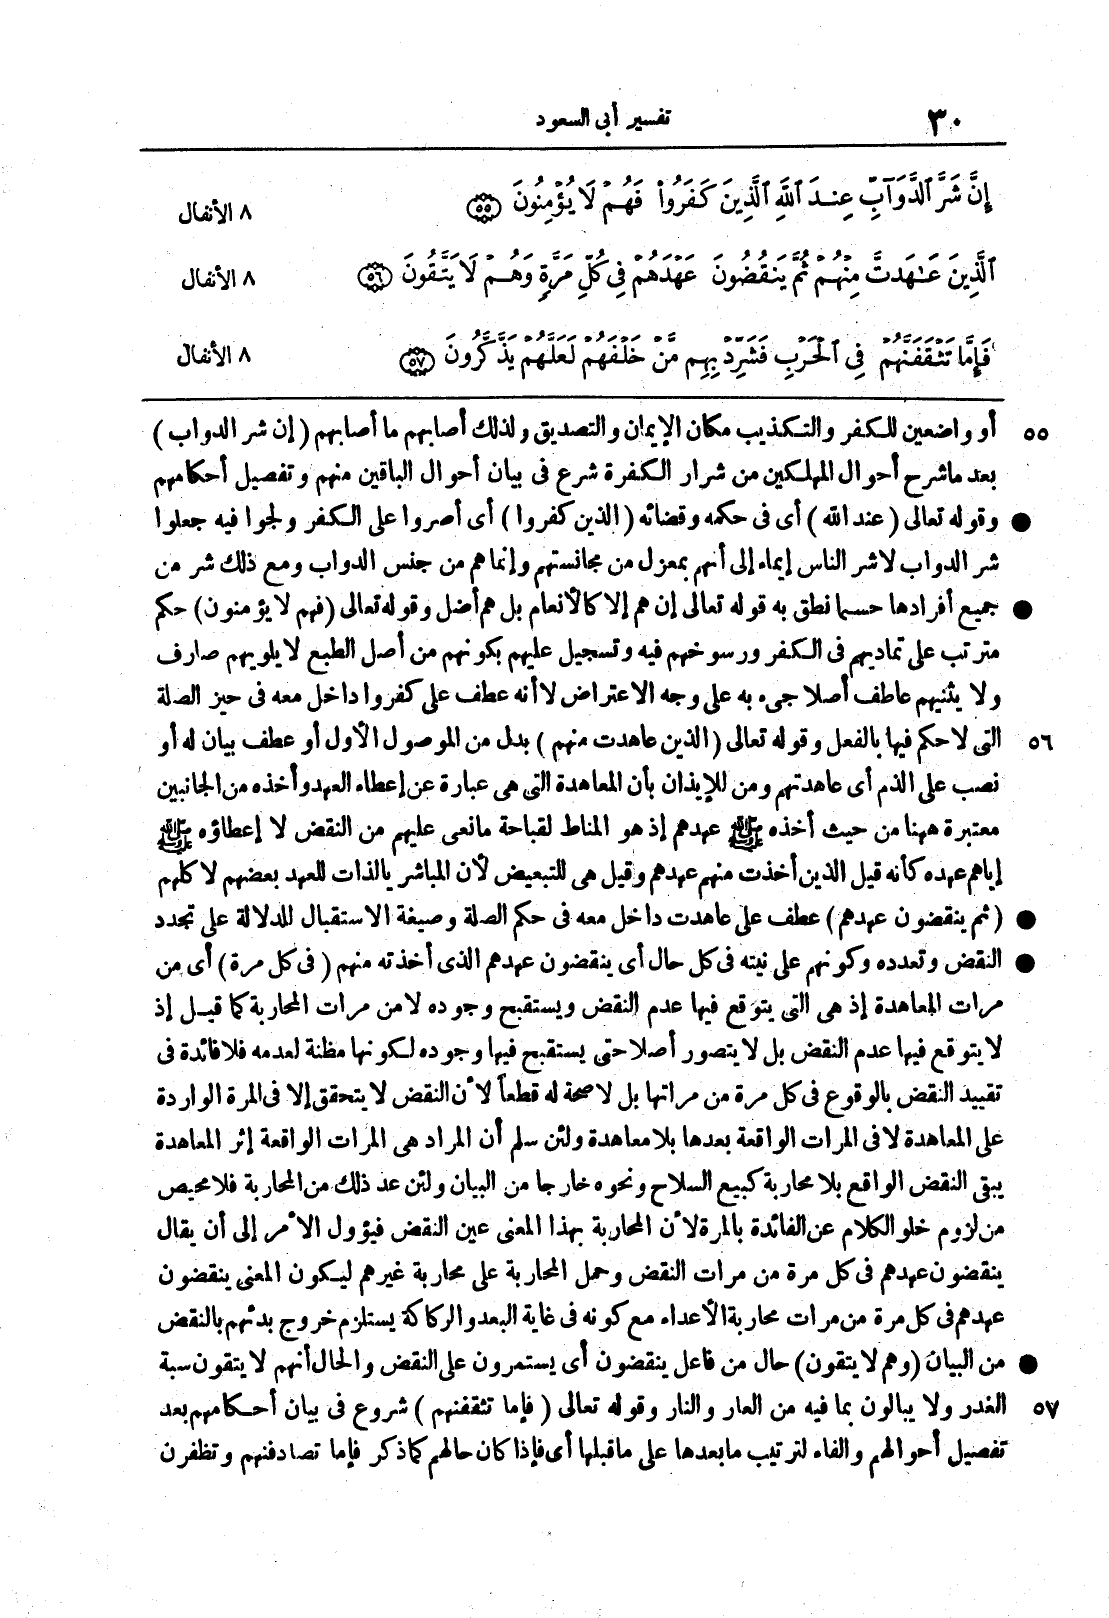 ٣٠ تفسير أبى السعود
إِنَّ شَرَّ ٱلدَّوَآبِّ عِندَ ٱللَّهِ ٱلَّذِينَ كَفَرُوا۟ فَهُمْ لَا يُؤْمِنُونَ ﴿٥٥﴾ ٨ الأنفال
ٱلَّذِينَ عَٰهَدتَّ مِنْهُمْ ثُمَّ يَنقُضُونَ عَهْدَهُمْ فِى كُلِّ مَرَّةٍ وَهُمْ لَا يَتَّقُونَ ﴿٥٦﴾ ٨ الأنفال
فَإِمَّا تَثْقَفَنَّهُمْ فِى ٱلْحَرْبِ فَشَرِّدْ بِهِم مَّنْ خَلْفَهُمْ لَعَلَّهُمْ يَذَّكَّرُونَ ﴿٥٧﴾ ٨ الأنفال
٥٥ أو واضعين للكفر والتكذيب مكان الإيمان والتصديق ولذلك أصابهم ما أصابهم ( إن شر الدواب )
بعد ماشرح أحوال المهلكين من شرار الكفرة شرع فى بيان أحوال الباقين منهم وتفصيل أحكامهم
● وقوله تعالى ( عند الله ) أى فى حكمه وقضائه ( الذين كفروا ) أى أصروا على الكفر ولجوا فيه جعلوا
شر الدواب لاشر الناس إيماء إلى أنهم بمعزل من مجانستهم وإنما هم من جنس الدواب ومع ذلك شر من
● جميع أفرادها حسبما نطق به قوله تعالى إن هم إلا كالأنعام بل هم أضل وقوله تعالى (فهم لا يؤمنون) حكم
مترتب على تماديهم فى الكفر ورسوخهم فيه وتسجيل عليهم بكونهم من أصل الطبع لا يلويهم صارف
ولا يثنيهم عاطف أصلا جىء به على وجه الاعتراض لا أنه عطف على كفروا داخل معه فى حيز الصلة
٥٦ التى لا حكم فيها بالفعل وقوله تعالى ( الذين عاهدت منهم ) بدل من الموصول الأول أو عطف بيان له أو
نصب على الذم أى عاهدتهم ومن للإيذان بأن المعاهدة التى هى عبارة عن إعطاء العهد وأخذه من الجانبين
معتبرة ههنا من حيث أخذه ﷺ عهدهم إذ هو المناط لقباحة مانعى عليهم من النقض لا إعطاؤه ﷺ
إياهم عهده كأنه قيل الذين أخذت منهم عهدهم وقيل هى للتبعيض لأن المباشر بالذات للعهد بعضهم لا كلهم
● ( ثم ينقضون عهدهم ) عطف على عاهدت داخل معه فى حكم الصلة وصيغة الاستقبال للدلالة على تجدد
● النقض وتعدده وكونهم على نيته فى كل حال أى ينقضون عهدهم الذى أخذته منهم ( فى كل مرة ) أى من
مرات المعاهدة إذ هى التى يتوقع فيها عدم النقض ويستقبح وجوده لا من مرات المحاربة كما قيل إذ
لا يتوقع فيها عدم النقض بل لا يتصور أصلا حتى يستقبح فيها وجوده لكونها مظنة لعدمه فلا فائدة فى
تقييد النقض بالوقوع فى كل مرة من مراتها بل لا صحة له قطعاً لأن النقض لا يتحقق إلا فى المرة الواردة
على المعاهدة لا فى المرات الواقعة بعدها بلا معاهدة ولئن سلم أن المراد هى المرات الواقعة إثر المعاهدة
يبقى النقض الواقع بلا محاربة كبيع السلاح ونحوه خارجا من البيان ولئن عد ذلك من المحاربة فلا محيص
من لزوم خلو الكلام عن الفائدة بالمرة لأن المحاربة بهذا المعنى عين النقض فيؤول الأمر إلى أن يقال
ينقضون عهدهم فى كل مرة من مرات النقض وحمل المحاربة على محاربة غيرهم ليكون المعنى ينقضون
عهدهم فى كل مرة من مرات محاربة الأعداء مع كونه فى غاية البعد والركاكة يستلزم خروج بدئهم بالنقض
● من البيان (وهم لا يتقون) حال من فاعل ينقضون أى يستمرون على النقض والحال أنهم لا يتقون سبة
٥٧ الغدر ولا يبالون بما فيه من العار والنار وقوله تعالى ( فإما تثقفنهم ) شروع فى بيان أحكامهم بعد
تفصيل أحوالهم والفاء لترتيب مابعدها على ماقبلها أى فإذا كان حالهم كما ذكر فإما تصادفنهم وتظفرن